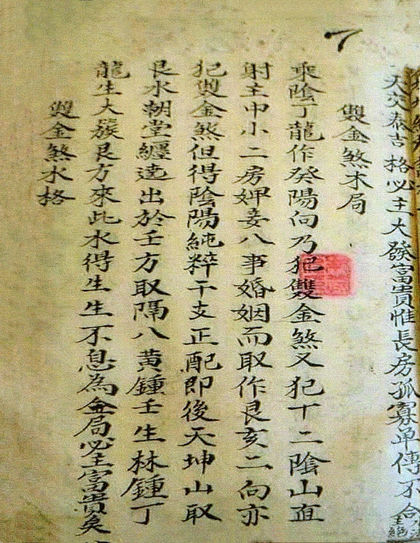 7
穴泰吉格必主大發富貴惟長房孤寡單傳不
雙金煞木局
乘陰丁龍作癸陽向乃犯雙金煞又犯十二陰山直
射主中小二房婢妾八事婚姻而取作艮亥二向亦
犯雙金煞但得陰陽純粹干支正配即後天坤山取
艮水朝堂纏遶出於壬方取隔八黃鍾壬生林鍾丁
龍生大族艮方來此水得生生不息為金局必主富貴矣
雙金煞水格